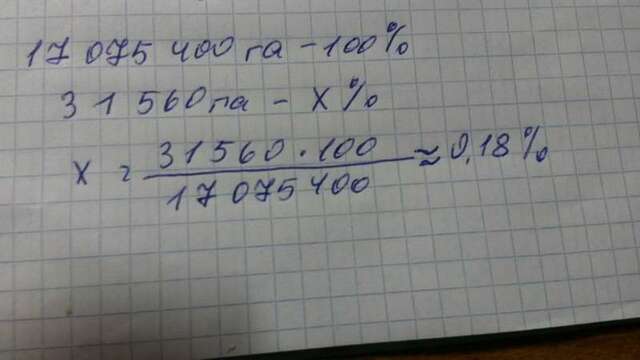 17 075 400 га - 100%
31 560 га - х%
х = 31560 · 100 / 17 075 400 ≈ 0,18%